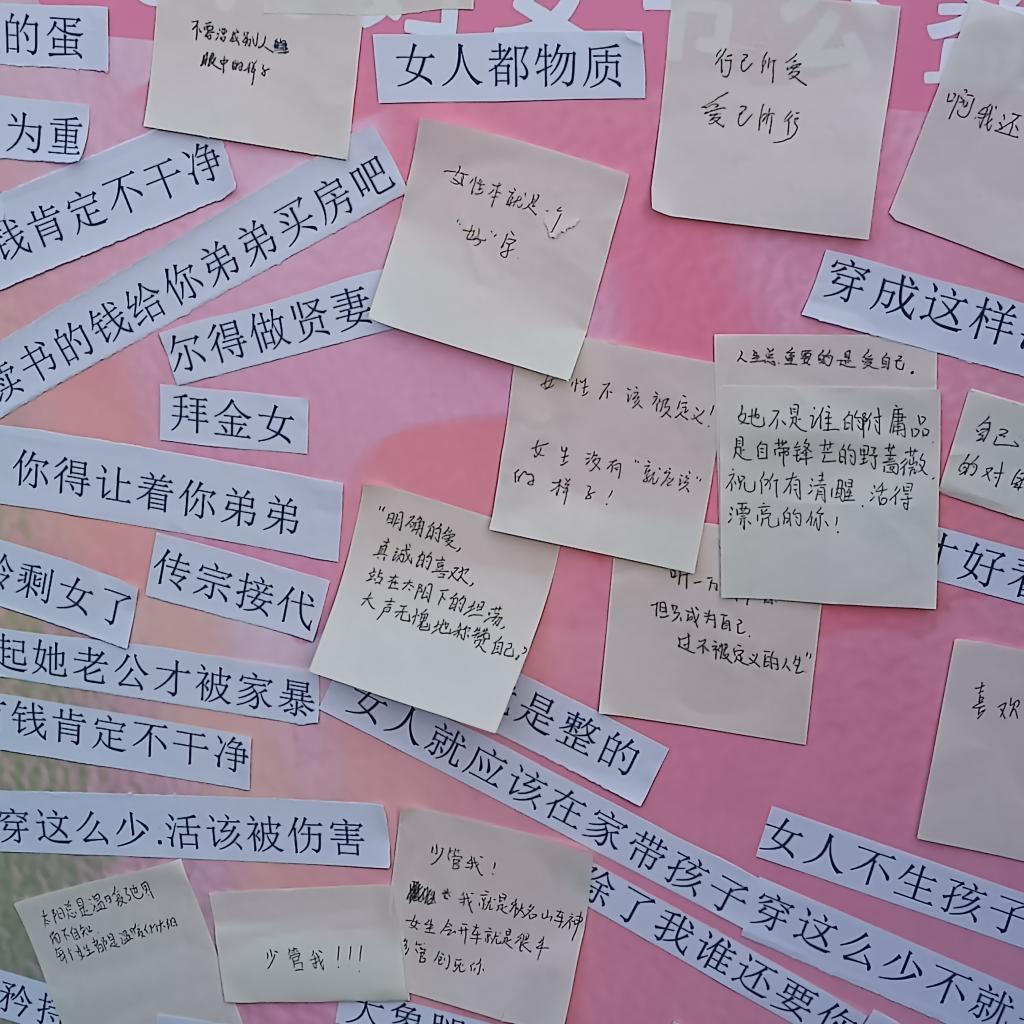 的蛋
不要活成别人
眼中的样子
女人都物质
行己所爱
爱己所行
啊我还
为重
钱肯定不干净
读书的钱给你弟弟买房吧
尔得做贤妻
女性本就是个
"好"字
穿成这样
拜金女
女性不该被定义！
女生没有"就应该"
的样子！
人生总重要的是爱自己。
她不是谁的附庸品
是自带锋芒的野蔷薇
祝所有清醒、活得
漂亮的你！
自己
的对
你得让着你弟弟
"明确的爱，
真诚的喜欢，
站在太阳下的坦荡，
大声无愧地称赞自己。"
但只成为自己
过不被定义的人生"
才好看
剩女了
传宗接代
起她老公才被家暴
钱肯定不干净
是整的
喜欢
女人就应该在家带孩子
穿这么少.活该被伤害
女人不生孩子
穿这么少不就
除了我谁还要你
太阳总是温暖他用
而不自知
少管我！！！
少管我！
我就是秋名山车神
女生会开车就是很牛
多管创死你
矜持